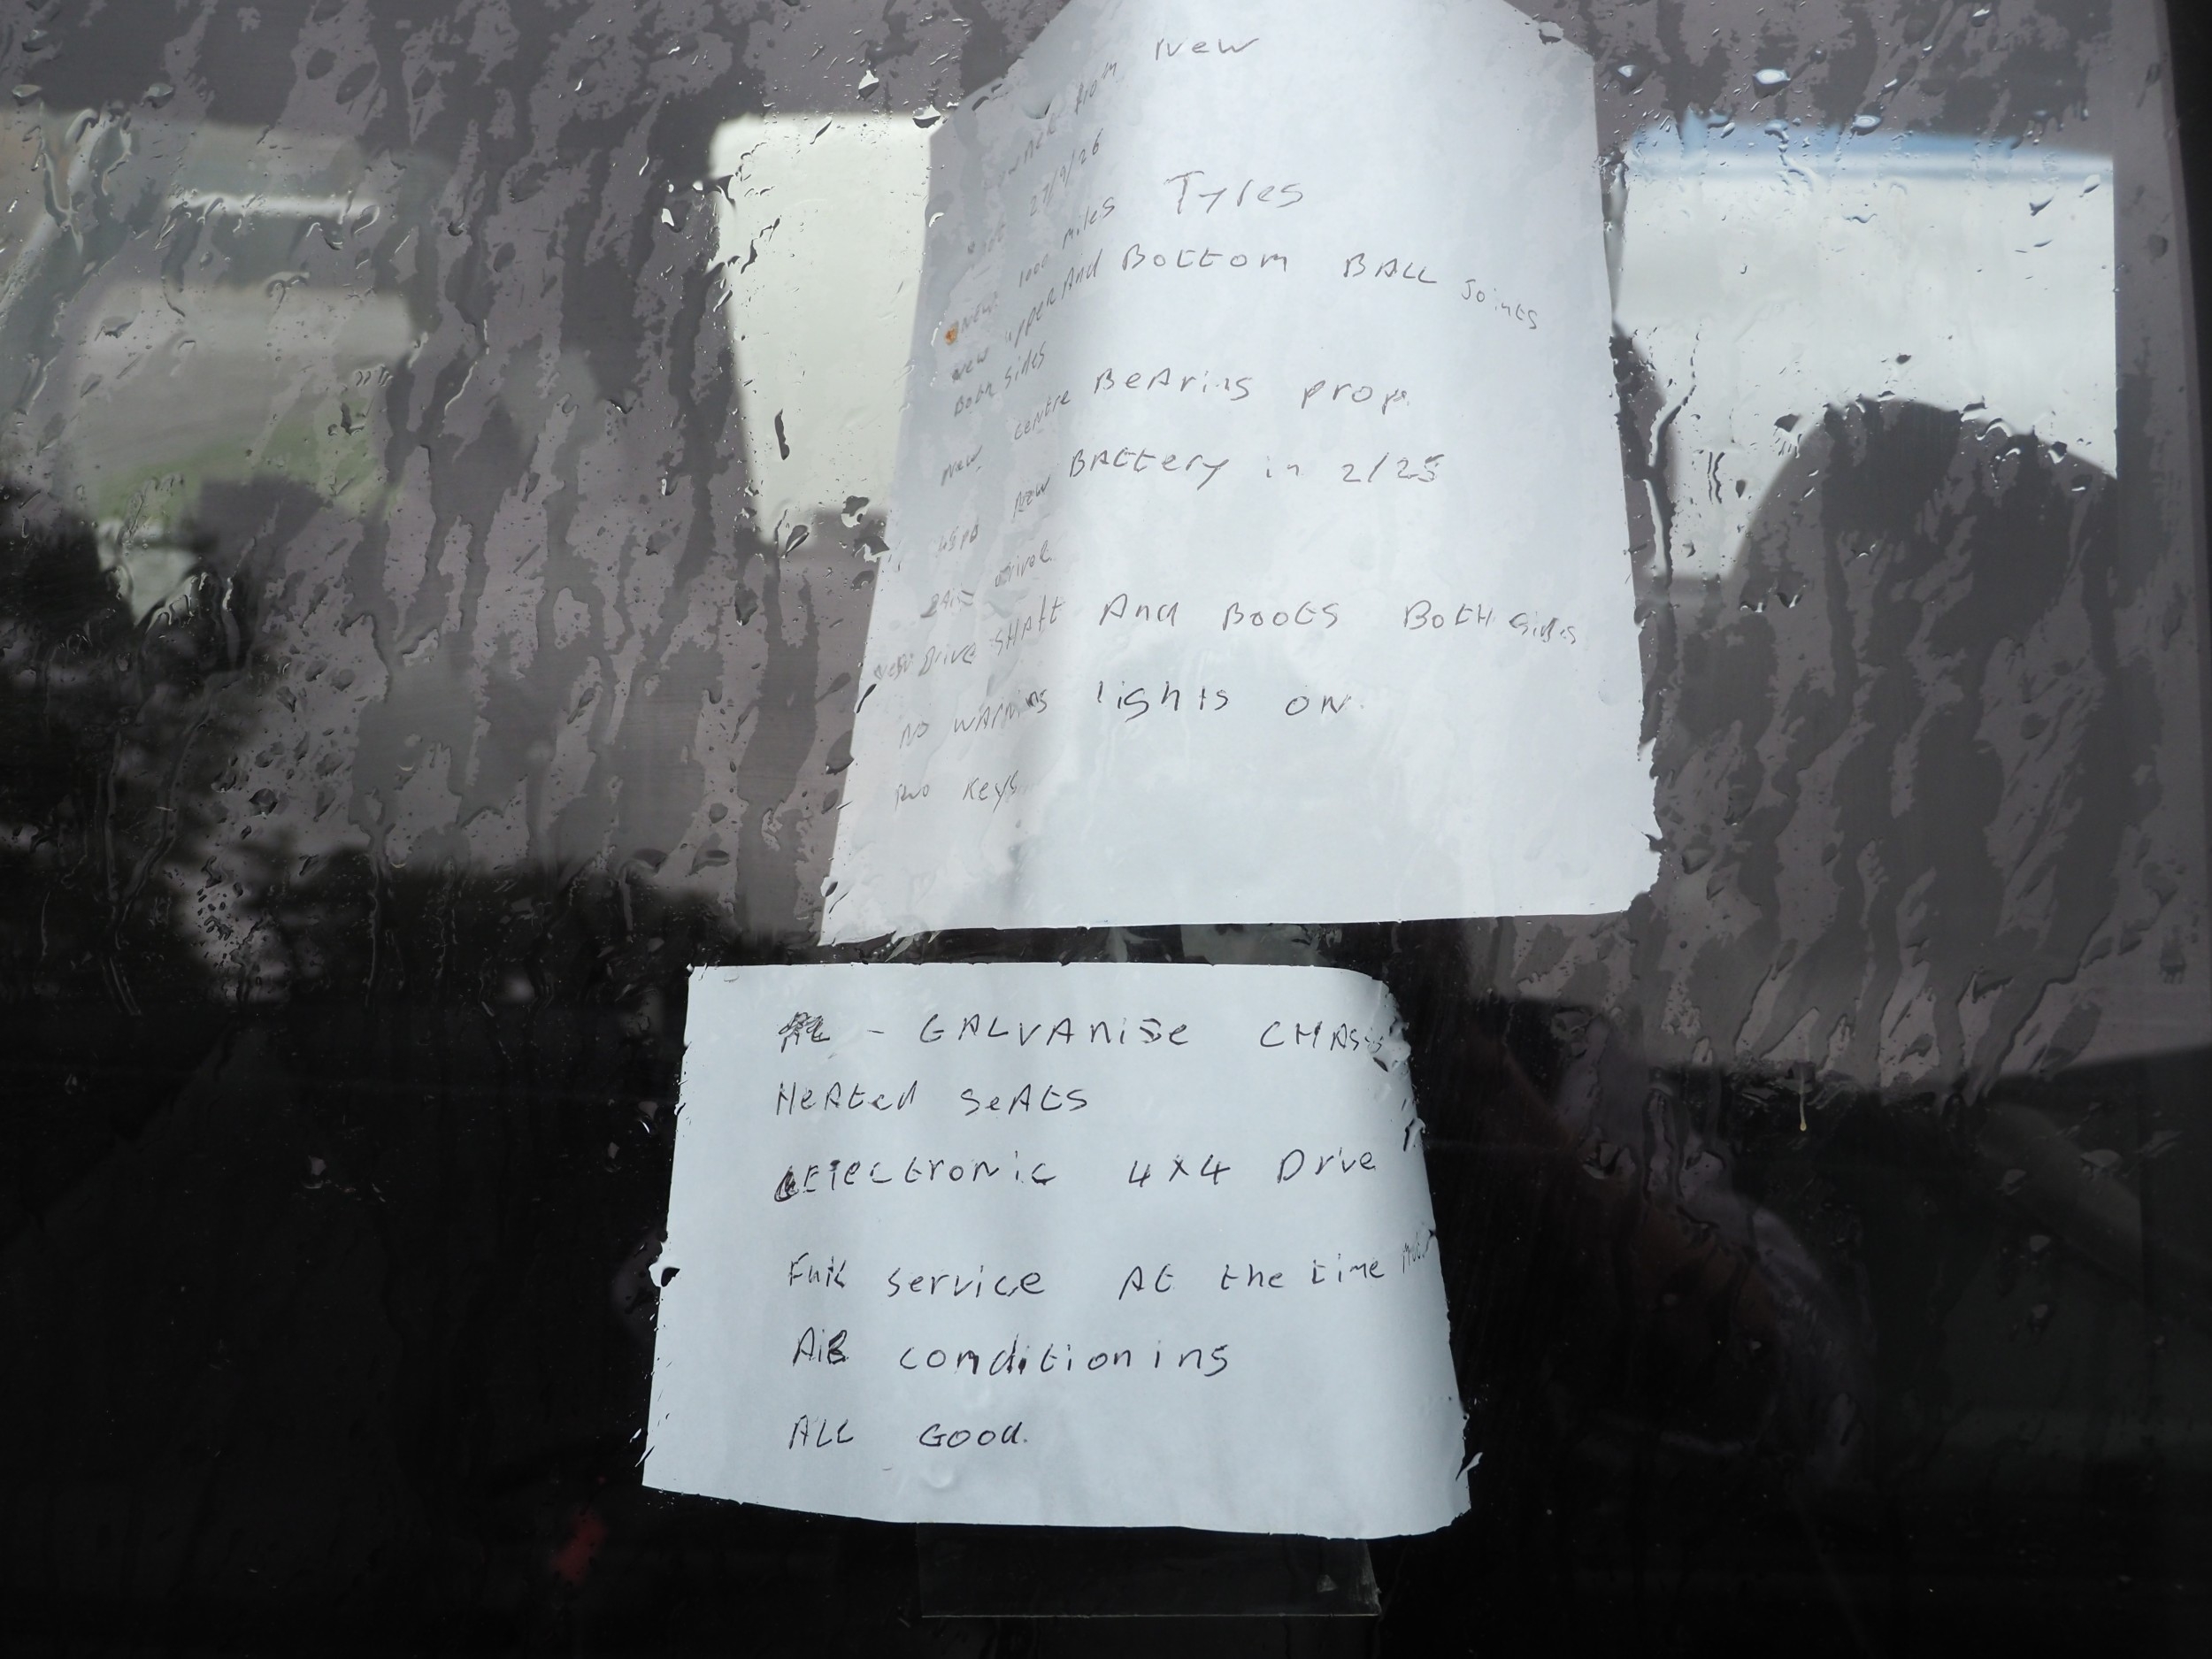 from New
27/9/26
New 1000 miles Tyres
New upper And Bottom BALL Joints
Both sides
New centre BeAring prop
New BAttery in 2/25
New Drive SHAft And Boots Both sides
NO WARNing lights on.
two Keys
- GALVANiSe CHASSis
HeAted SeAts
Electronic 4x4 Drive
Full Service At the time
AiR conditioning
ALL Good.